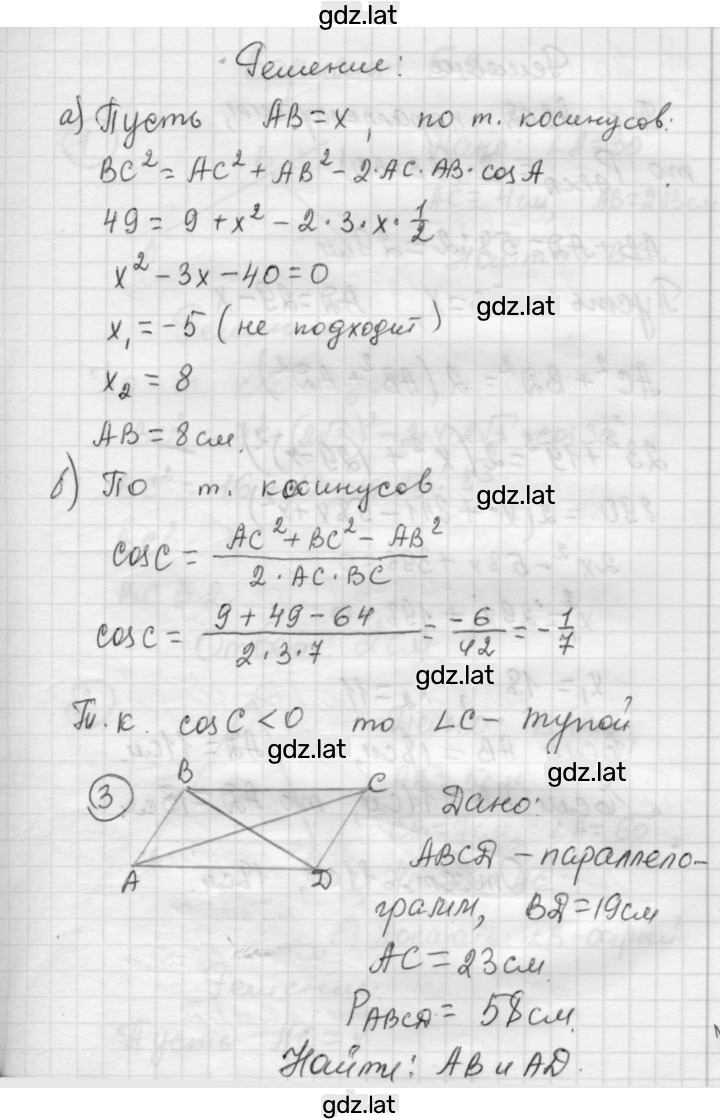 gdz.lat
Решение:
а) Пусть AB = x, по т. косинусов:
BC² = AC² + AB² - 2·AC·AB·cos A
49 = 9 + x² - 2·3·x·1/2
x² - 3x - 40 = 0
gdz.lat
x₁ = -5 (не подходит)
x₂ = 8
AB = 8 см.
б) По т. косинусов
gdz.lat
cos C = (AC² + BC² - AB²)/(2·AC·BC)
cos C = (9 + 49 - 64)/(2·3·7) = -6/42 = -1/7
gdz.lat
Т.к. cos C < 0 то ∠C - тупой
gdz.lat
gdz.lat
3
B C
A D
Дано:
ABCD - параллело-
грамм, BD = 19 см
AC = 23 см.
P_ABCD = 58 см.
Найти: AB и AD.
gdz.lat